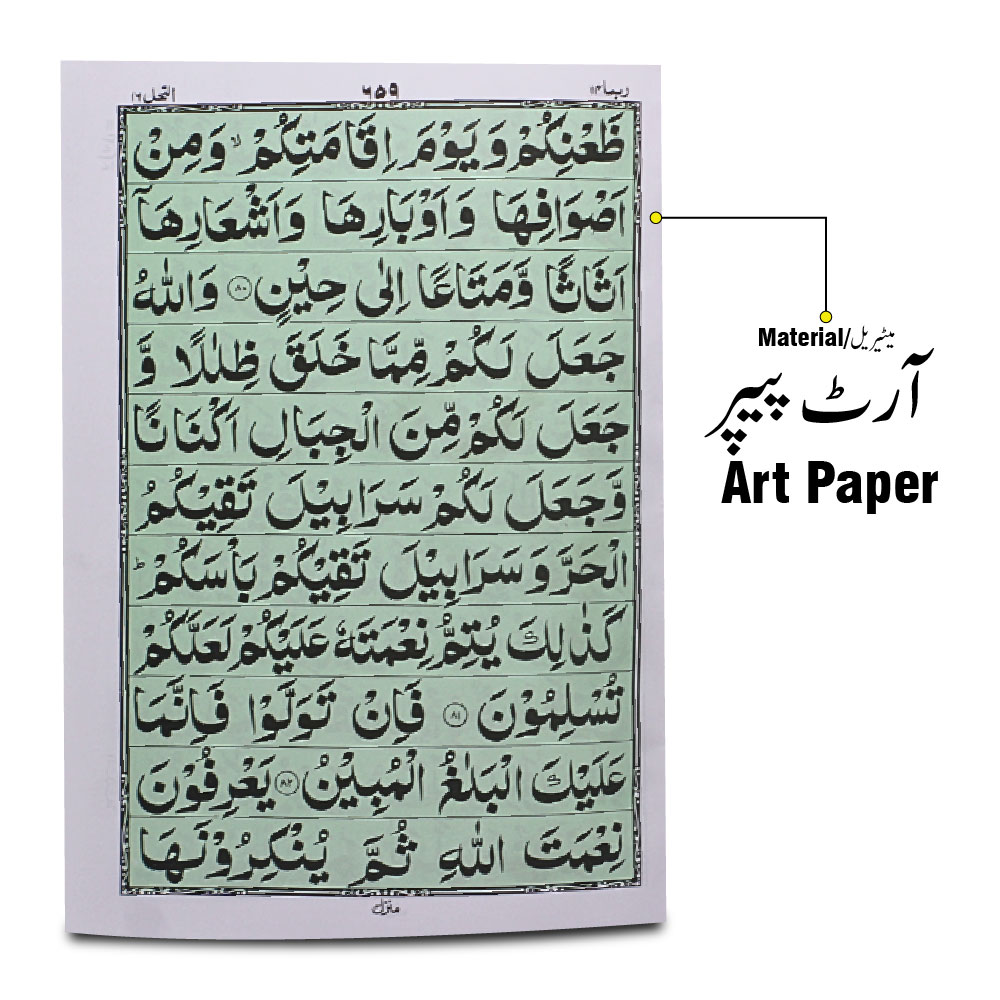 ربما ١٤ ٦٥٩ النحل ١٦
ظَعْنِكُمْ وَيَوْمَ اِقَامَتِكُمْ ۙ وَمِنْ
اَصْوَافِهَا وَاَوْبَارِهَا وَاَشْعَارِهَاۤ
اَثَاثًا وَّمَتَاعًا اِلٰى حِيْنٍ ﴿٨٠﴾ وَاللّٰهُ
جَعَلَ لَكُمْ مِّمَّا خَلَقَ ظِلٰلًا وَّ
جَعَلَ لَكُمْ مِّنَ الْجِبَالِ اَكْنَانًا
وَّجَعَلَ لَكُمْ سَرَابِيْلَ تَقِيْكُمُ
الْحَرَّ وَسَرَابِيْلَ تَقِيْكُمْ بَاْسَكُمْ ؕ
كَذٰلِكَ يُتِمُّ نِعْمَتَهٗ عَلَيْكُمْ لَعَلَّكُمْ
تُسْلِمُوْنَ ﴿٨١﴾ فَاِنْ تَوَلَّوْا فَاِنَّمَا
عَلَيْكَ الْبَلٰغُ الْمُبِيْنُ ﴿٨٢﴾ يَعْرِفُوْنَ
نِعْمَتَ اللّٰهِ ثُمَّ يُنْكِرُوْنَهَا
منزل
Material/میٹیریل
آرٹ پیپر
Art Paper